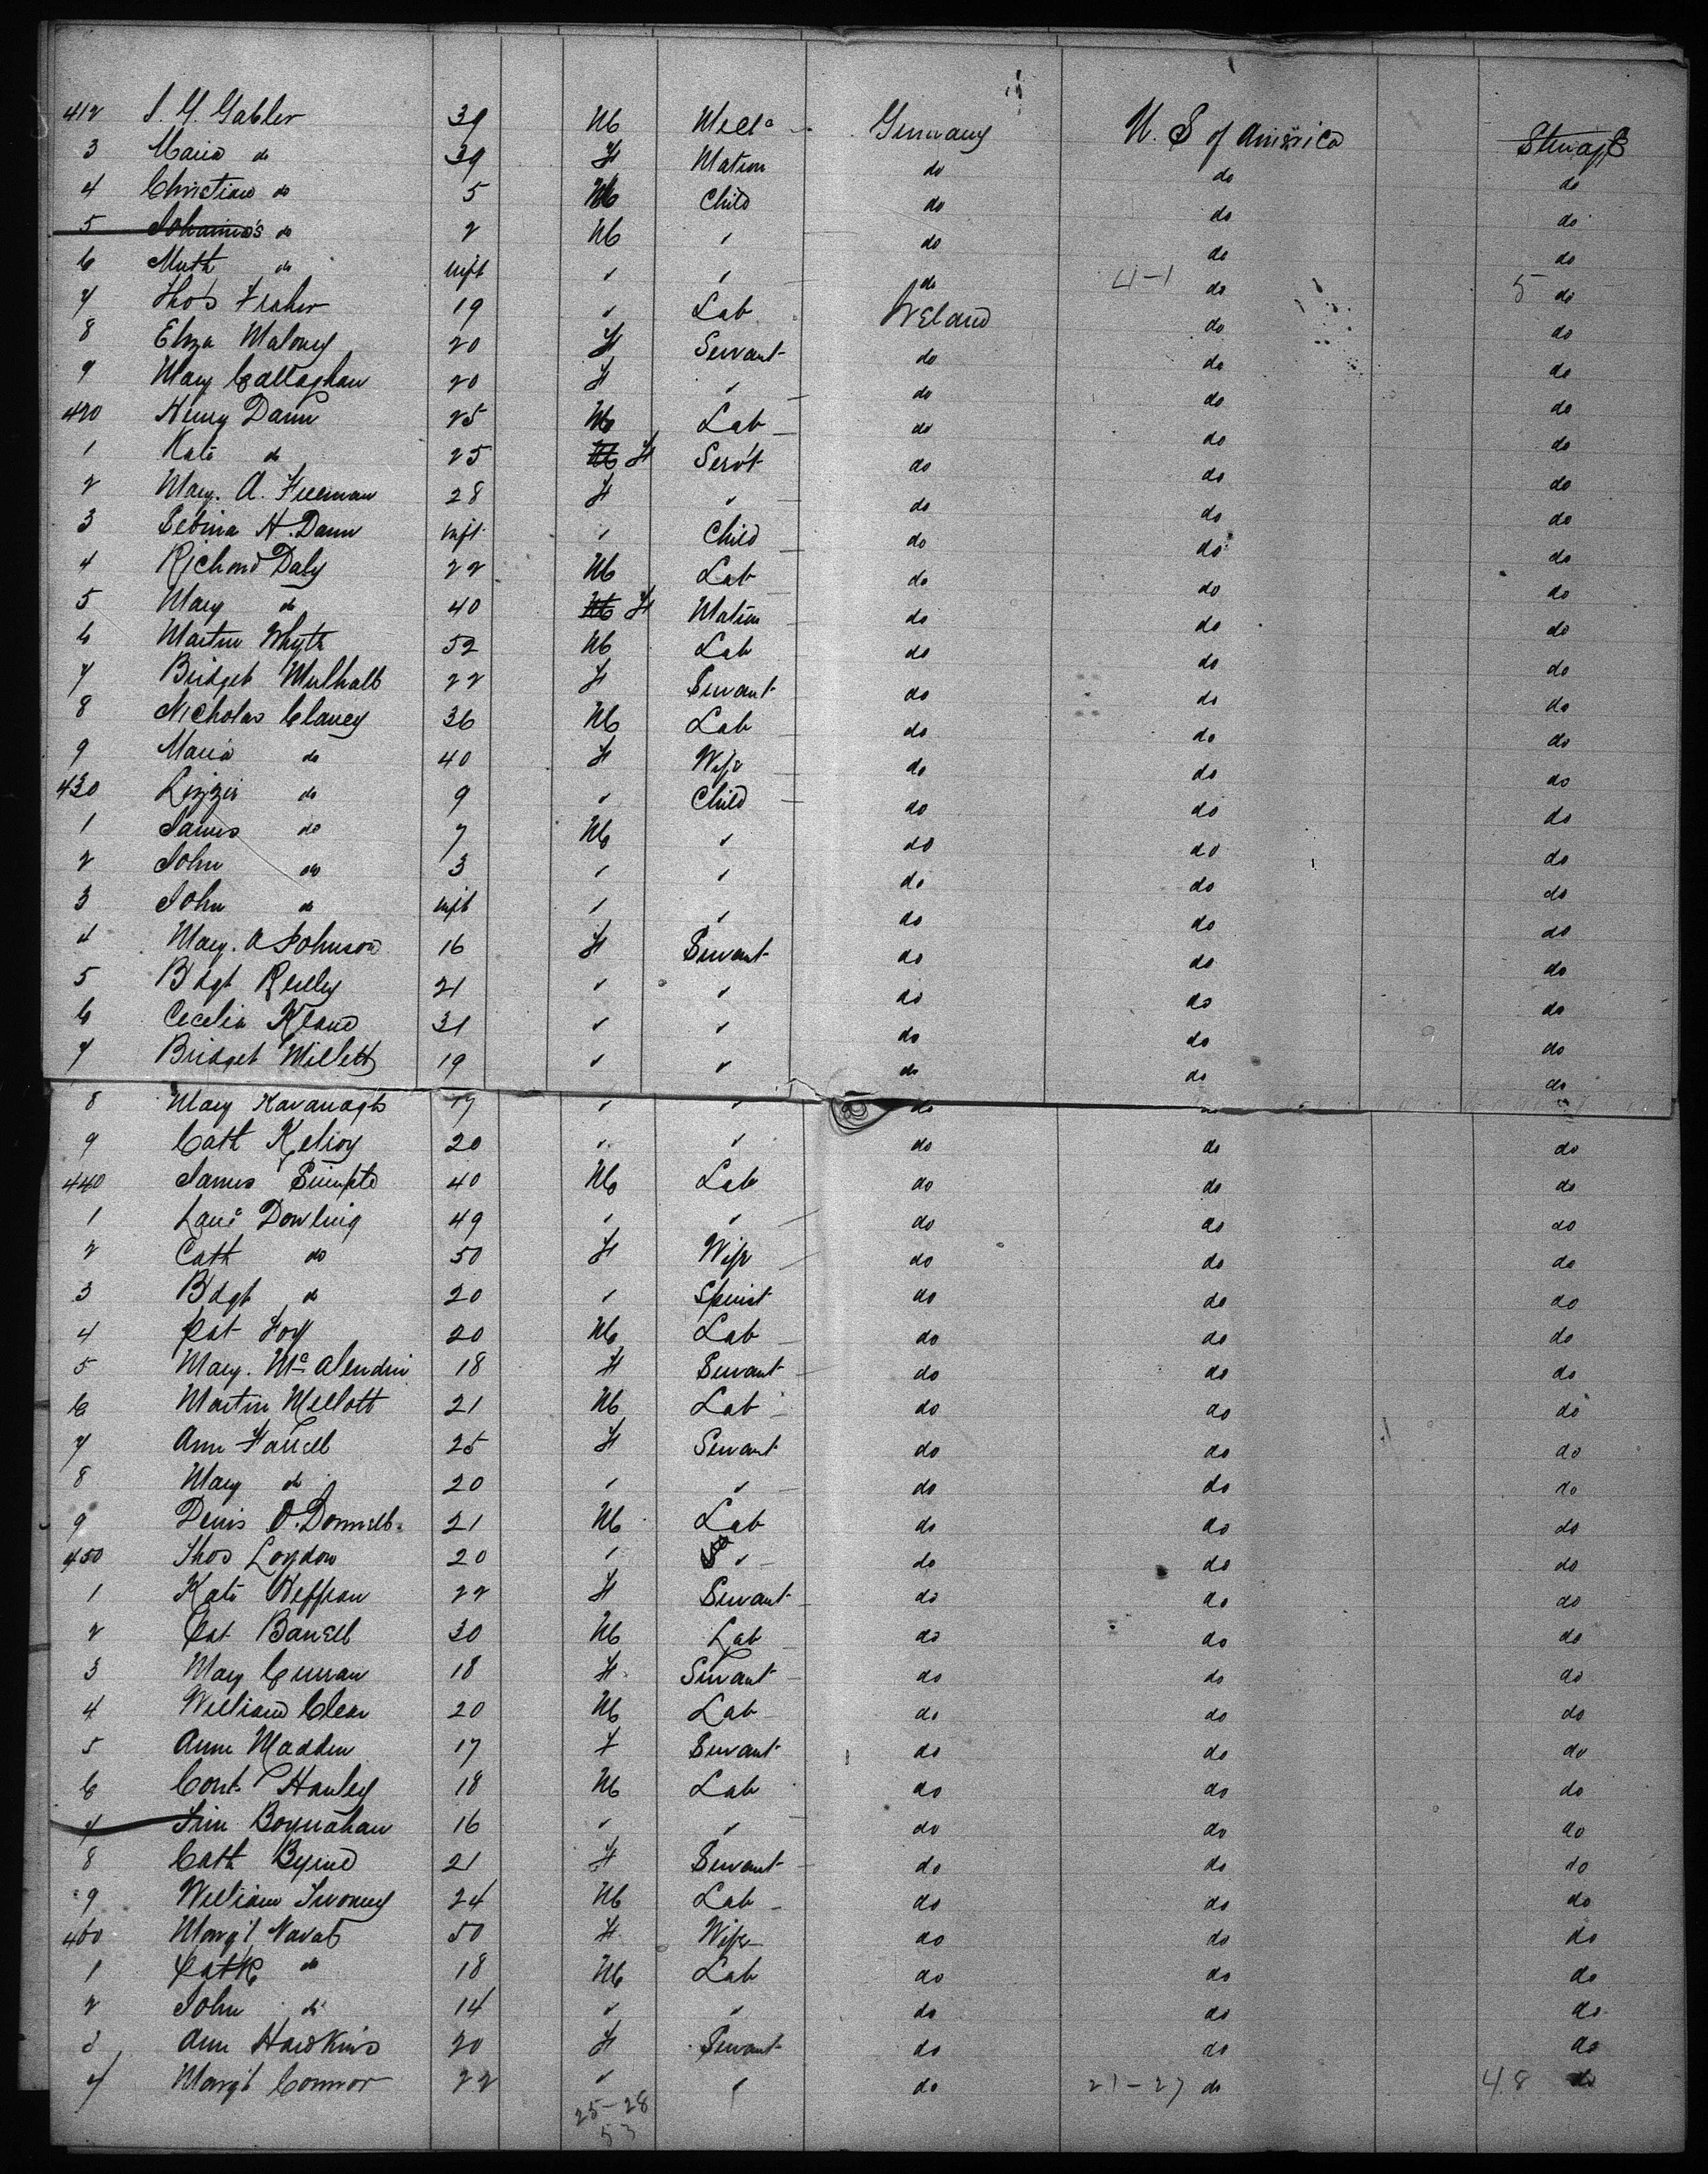 412 J. G. Gabler 39 M Mecc Germany U. S of America Steerage
3 Maria do 39 F Matron do do do
4 Christian do 5 M Child do do do
5 Johannes do 2 M " do do do
6 do Inft " " do 4-1 do 5 do
7 Thos Fraher 19 " Lab Ireland do do
8 Eliza Maloney 20 F Servant do do do
9 Mary Callaghan 20 F " do do do
420 Henry Dann 25 M Lab do do do
1 Kate do 25 F Servt do do do
2 Mary. A. Freeman 28 F " do do do
3 H. Dann Inft " Child do do do
4 Richard Daly 22 M Lab do do do
5 Mary do 40 F Matron do do do
6 Martin Whyte 52 M Lab do do do
7 Bridget Mulhall 22 F Servant do do do
8 Nicholas Clancy 36 M Lab do do do
9 Maria do 40 F Wife do do do
430 Lizzie do 9 " Child do do do
1 James do 7 M " do do do
2 John do 3 " " do do do
3 John do Inft " " do do do
4 Mary. A Johnson 16 F Servant do do do
5 Bdgt Reilley 21 " " do do do
6 Cecelia Keane 31 " " do do do
7 Bridget Millett 19 " " do do do
8 Mary Kavanagh 19 " " do do do
9 Cath 20 " " do do do
440 James 40 M Lab do do do
1 Dowling 49 " " do do do
2 Cath do 50 F Wife do do do
3 Bdgt do 20 " Spinst do do do
4 Pat Foy 20 M Lab do do do
5 Mary. McAlendin 18 F Servant do do do
6 Martin Mellott 21 M Lab do do do
7 Ann Farrell 25 F Servant do do do
8 Mary do 20 " " do do do
9 Denis O.Donnell 21 M Lab do do do
450 Thos Loydon 20 " " do do do
1 Kate Heffran 22 F Servant do do do
2 Pat 30 M Lab do do do
3 Mary Curran 18 F Servant do do do
4 William Clear 20 M Lab do do do
5 Anne Madden 17 F Servant do do do
6 Cont Hanley 18 M Lab do do do
7 Jim Boynahan 16 " " do do do
8 Cath Byrne 21 F Servant do do do
9 William Twomey 24 M Lab do do do
460 Margt 50 F Wife do do do
1 Patk do 18 M Lab do do do
2 John do 14 " " do do do
3 Ann Hawkins 20 F Servant do do do
4 Margt Connor 22 " " do 21-27 do 48 do
25-28
53